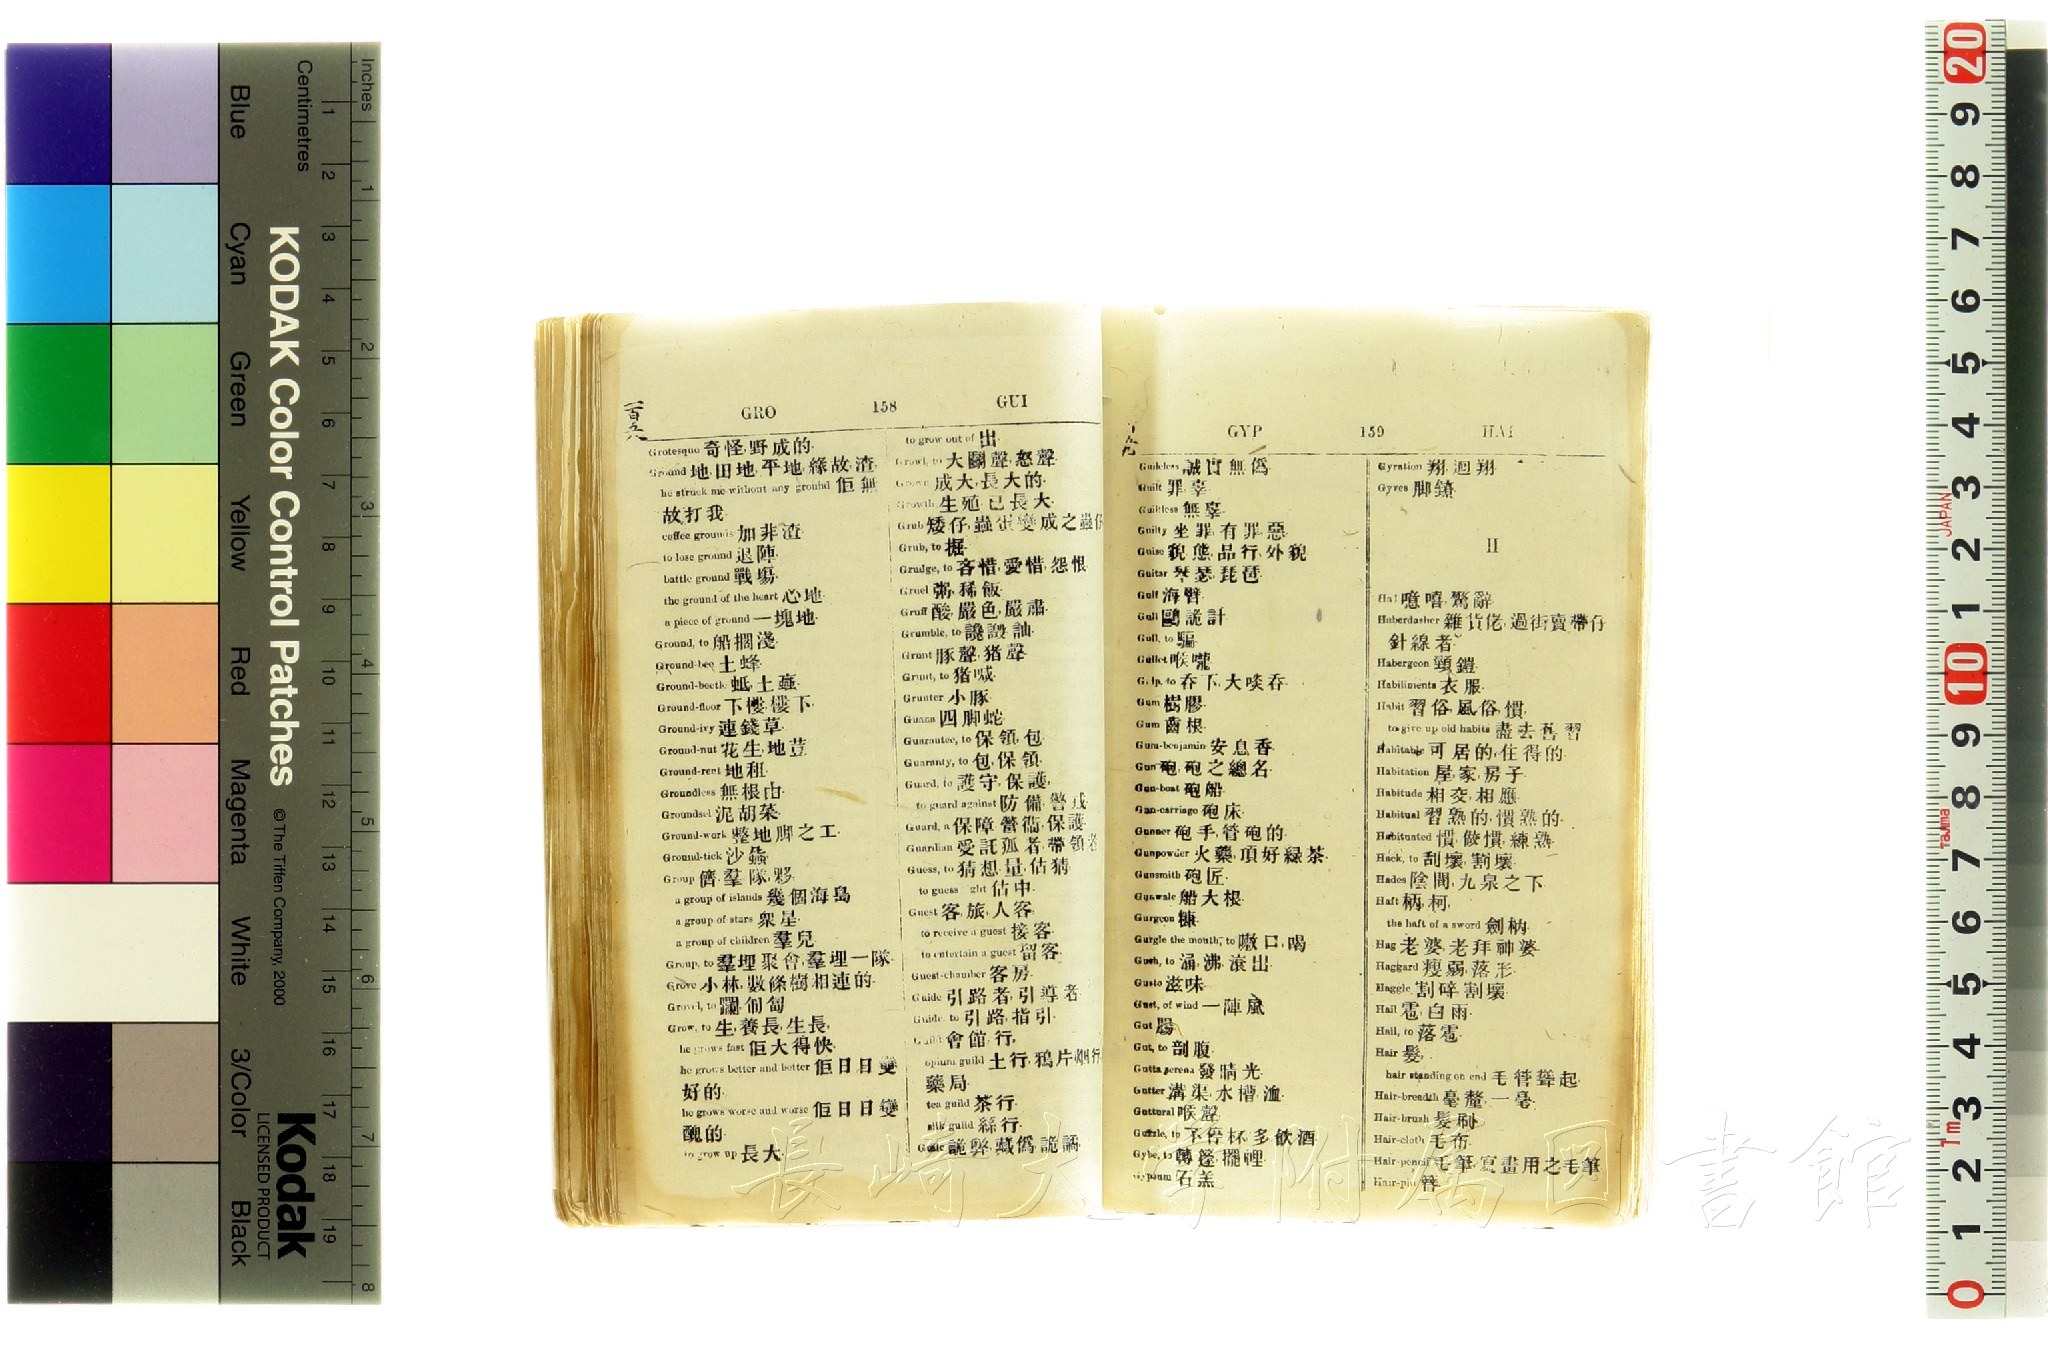 Inches
Centimetres
KODAK Color Control Patches
© The Tiffen Company, 2000
Kodak
LICENSED PRODUCT
Blue
Cyan
Green
Yellow
Red
Magenta
White
3/Color
Black
GRO 158 GUI
Grotesque 奇怪,野成的
Ground 地,田地,平地,緣故,渣
he struck me without any ground 佢無
故打我
coffee grounds 加非渣
to lose ground 退陣
battle ground 戰塲
the ground of the heart 心地
a piece of ground 一塊地
Ground, to 船擱淺
Ground-bee 土蜂
Ground-beetle 蚳,土
Ground-floor 下樓,樓下
Ground-ivy 連錢草
Ground-nut 花生,地荳
Ground-rent 地租
Groundless 無根由
Groundsel 泥胡菜
Ground-work 整地脚之工
Ground-tick 沙蝨
Group 儕,羣,隊,夥
a group of islands 幾個海島
a group of stars 衆星
a group of children 羣兒
Group, to 羣埋聚會,羣埋一隊
Grove 小林,數條樹相連的
Grovel, to 匍匐
Grow, to 生,養長,生長
he grows fast 佢大得快
he grows better and better 佢日日變
好的
he grows worse and worse 佢日日變
醜的
to grow up 長大
to grow out of 出
Growl, to 大聲,怒聲
Grown 成大,長大的
Growth 生殖,已長大
Grub 矮仔,蟲蛍變成之蟲仔
Grub, to 掘
Grudge, to 吝惜,愛惜,怨恨
Gruel 粥,稀飯
Gruff 酸,嚴色,嚴肅
Grumble, to
Grunt 豚聲,猪聲
Grunt, to 猪喊
Grunter 小豚
Guana 四脚蛇
Guarantee, to 保領,包
Guaranty, to 包,保領
Guard, to 護守,保護
to guard against 防備,警戒
Guard, a 保障,營衞,保護
Guardian 受託孤者,帶領者
Guess, to 猜想,量,估猜
to guess right 估中
Guest 客,旅,人客
to receive a guest 接客
to entertain a guest 留客
Guest-chamber 客房
Guide 引路者,引導者
Guide, to 引路,指引
Guild 會館,行
opium guild 土行,鴉片
藥局
tea guild 茶行
silk guild 絲行
Guile 詭弊,藏僞,詭譎
GYP 159 HAI
Guileless 誠實無僞
Guilt 罪,辜
Guiltless 無辜
Guilty 坐罪,有罪,惡
Guise 貌,態,品行,外貌
Guitar 琴瑟,琵琶
Gulf 海臂
Gull 鷗,詭計
Gull, to 騙
Gullet 喉嚨
Gulp, to 吞下,大啖吞
Gum 樹膠
Gum 齒根
Gum-benjamin 安息香
Gun 砲,砲之總名
Gun-boat 砲船
Gun-carriage 砲床
Gunner 砲手,管砲的
Gunpowder 火藥,頂好綠茶
Gunsmith 砲匠
Gunwale 船大根
Gurgeon 糠
Gurgle the mouth, to 嗽口,喝
Gush, to 涌,沸,滾出
Gusto 滋味
Gust, of wind 一陣風
Gut 腸
Gut, to 剖腹
Gutta serena 發睛光
Gutter 溝渠,水槽
Guttural 喉聲
Guzzle, to 不停杯,多飲酒
Gybe, to 轉篷,擺
Gypsum 石羔
Gyration 翔,迴翔
Gyves 脚鐐
H
Ha! 噫嘻,驚辭
Haberdasher 雜貨佬,過街賣帶仔
針線者
Habergeon 頸鎧
Habiliments 衣服
Habit 習俗,風俗,慣
to give up old habits 盡去舊習
Habitable 可居的,住得的
Habitation 屋家,房子
Habitude 相交,相應
Habitual 習熟的,慣熟的
Habituated 慣,做慣,練熟
Hack, to 刮壞,割壞
Hades 陰間,九泉之下
Haft 柄,柯
the haft of a sword 劍柄
Hag 老婆,老拜神婆
Haggard 瘦弱,落形
Haggle 割碎,割壞
Hail 雹,白雨
Hail, to 落雹
Hair 髮
hair standing on end 毛管聳起
Hair-breadth 毫釐,一毫
Hair-brush 髮刷
Hair-cloth 毛布
Hair-pencil 毛筆,寫畫用之毛筆
Hair-pin 簪
長崎大學附属図書館
JAPAN
Tajima